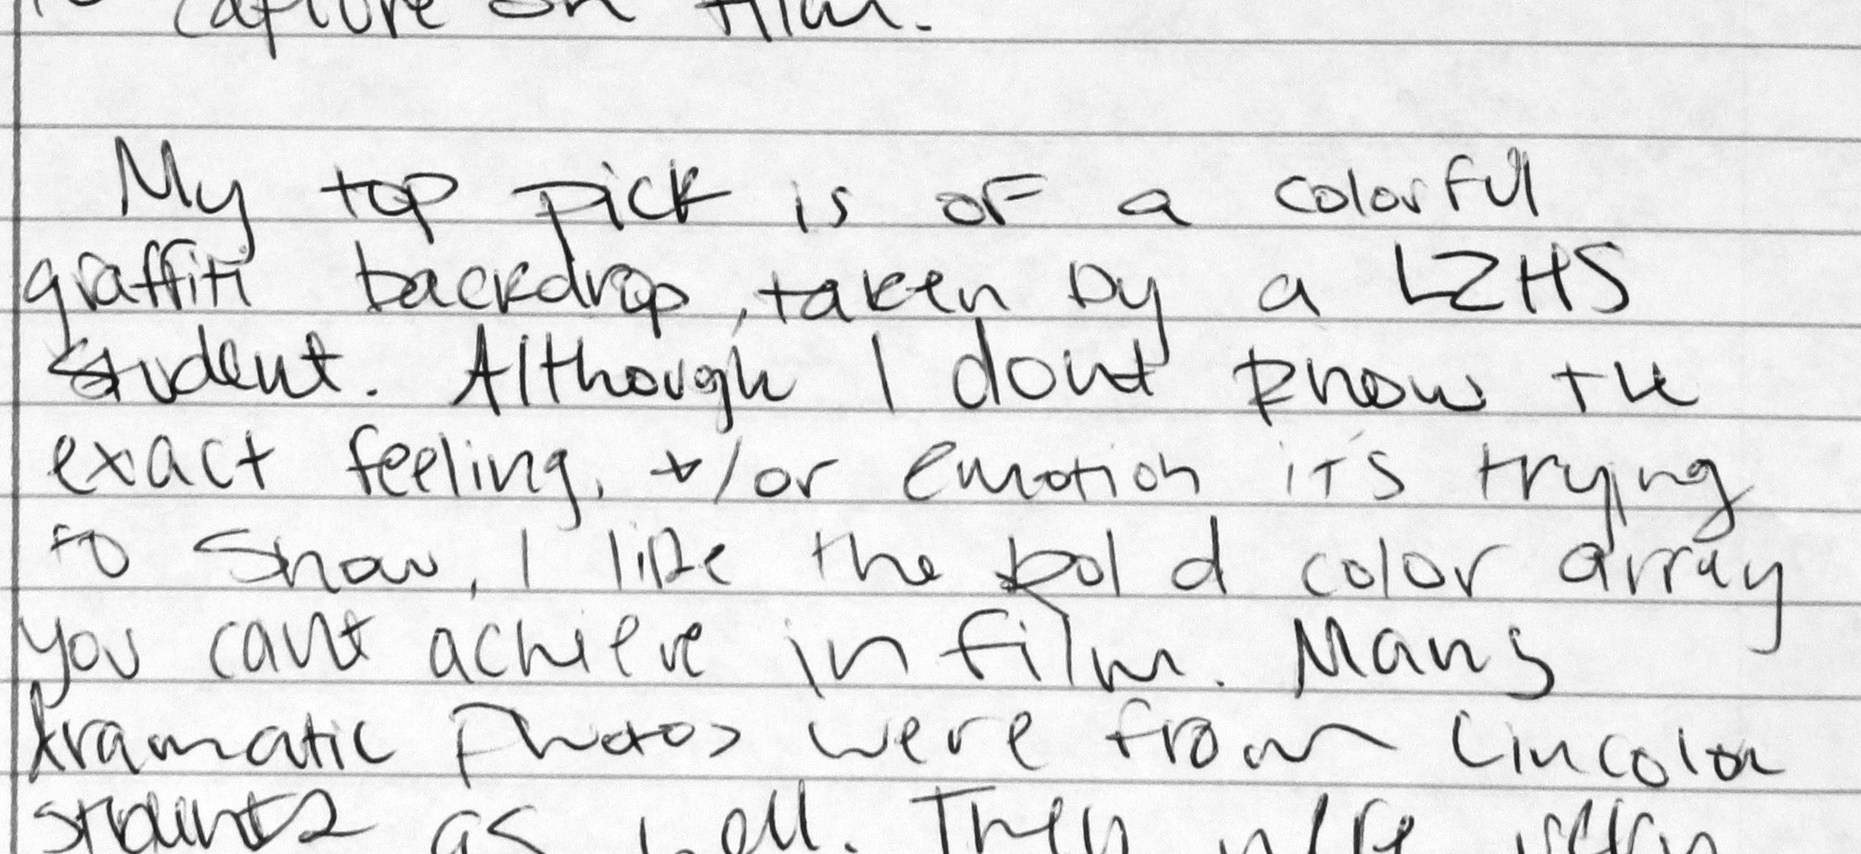 to capture on film.
My top pick is of a colorful
graffiti backdrop, taken by a LZHS
student. Although I dont know the
exact feeling, +/or emotion it's trying
to show, I like the bold color array
you cant achieve in film. Many
dramatic photos were from Lincoln
students as well. They were often